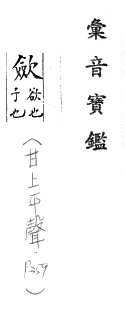 彙音寶鑑
歛
欲也
予也
（甘上平聲，P259）